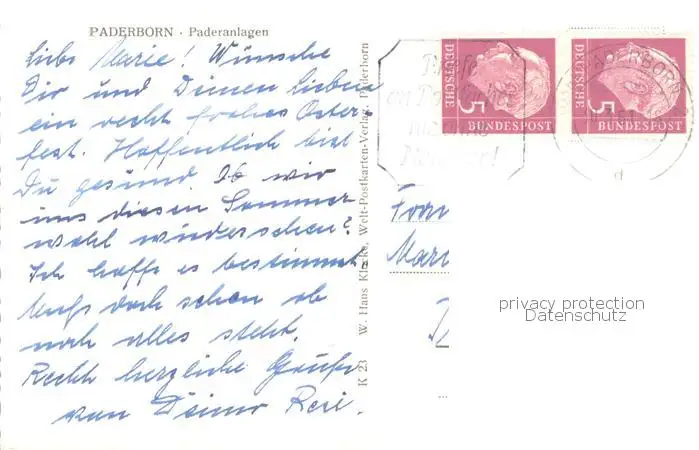 PADERBORN · Paderanlagen
Liebe Marie! Wünsche
Dir und Deinen Lieben
ein recht frohes Oster-
fest. Hoffentlich bist
Du gesund. Ob wir
uns diesen Sommer
wohl wiedersehen?
Ich hoffe es bestimmt
noch alles steht.
Recht herzliche Grüße
von Deiner Resi.
K 23 W. Hans Klucke, Welt-Postkarten-Verlag, Paderborn
DEUTSCHE
5
BUNDESPOST
DEUTSCHE
5
BUNDESPOST
PADERBORN
d
Frau
privacy protection
Datenschutz